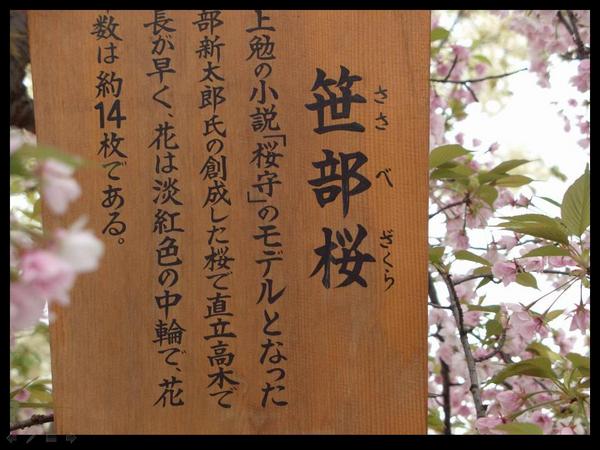 笹部桜
ささべざくら
上勉の小説「桜守」のモデルとなった
部新太郎氏の創成した桜で直立高木で
長が早く、花は淡紅色の中輪で、花
数は約14枚である。